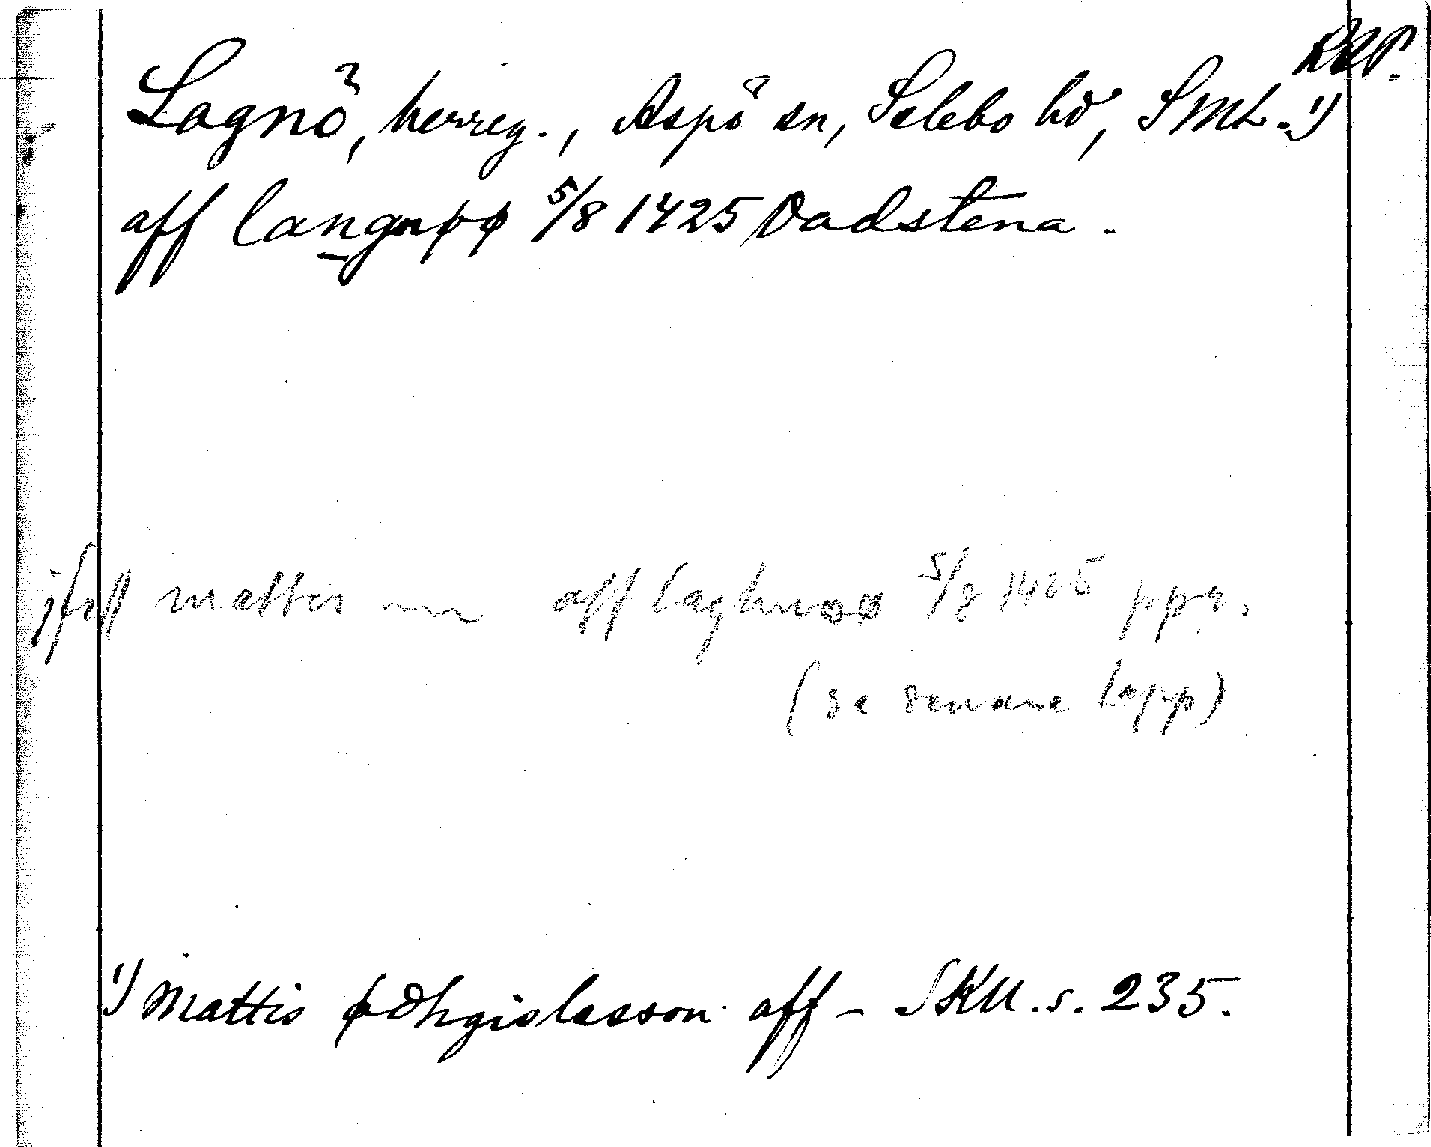 RAP.
Lagnö, herrg., Aspö sn, Selebo hd, SML. 1)
aff langnøø 5/8 1425 Vadstena.
jfr mattis aff laghnøø 5/8 1425 ppr.
(se denna lapp)
1) Mattis ødhgislasson aff – SKU. s. 235.